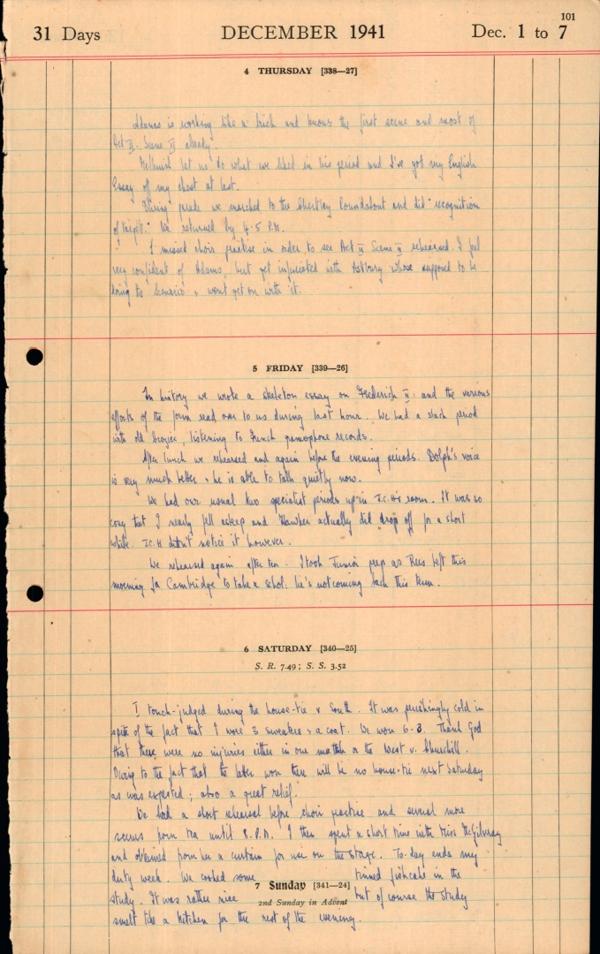 101
31 Days DECEMBER 1941 Dec. 1 to 7
4 THURSDAY [338—27]
Adams is working like a brick and knows the first scene and most of
Act II. Scene II already.
let us do what we liked in his period and I've got my English
Essay off my chest at last.
During parade we marched to the Roundabout and did "recognition
of targets". We returned by 4.5 P.M.
I missed choir practise in order to see Act II Scene II rehearsed. I feel
very confident of Adams, but get infuriated with whose supposed to be
doing to & won't get on with it.
5 FRIDAY [339—26]
In history we wrote a skeleton essay on Frederick II and the various
efforts of the form read over to us during last hour. We had a slack period
with old listening to French gramophone records.
After lunch we rehearsed and again before the evening periods. Dolph's voice
is very much better & he is able to talk quietly now.
We had our usual two specialist periods up in I.C.H's room. It was so
cosy that I nearly fell asleep and actually did drop off for a short
while. I.C.H didn't notice it however.
We rehearsed again after tea. I took Junior prep as Rees left this
morning for Cambridge to take a schol. He's not coming back this term.
6 SATURDAY [340—25]
S. R. 7.49; S. S. 3.52
I touch-judged during the house-tie v South. It was perishingly cold in
spite of the fact that I wore 3 sweaters & a coat. We won 6-3. Thank God
that there were no injuries either in our match or the West v. Churchill.
Owing to the fact that the later won there will be no house-tie next Saturday
as was expected; also a great relief.
We had a short rehearsal before choir practise and several more
scenes from tea until 8. P.M. I then spent a short time with Miss McGilvray
and obtained from her a curtain for use on the stage. To-day ends my
duty week. We cooked some tinned fishcake in the
7 Sunday [341—24]
study. It was rather nice but of course the study
2nd Sunday in Advent
smelt like a kitchen for the rest of the evening.